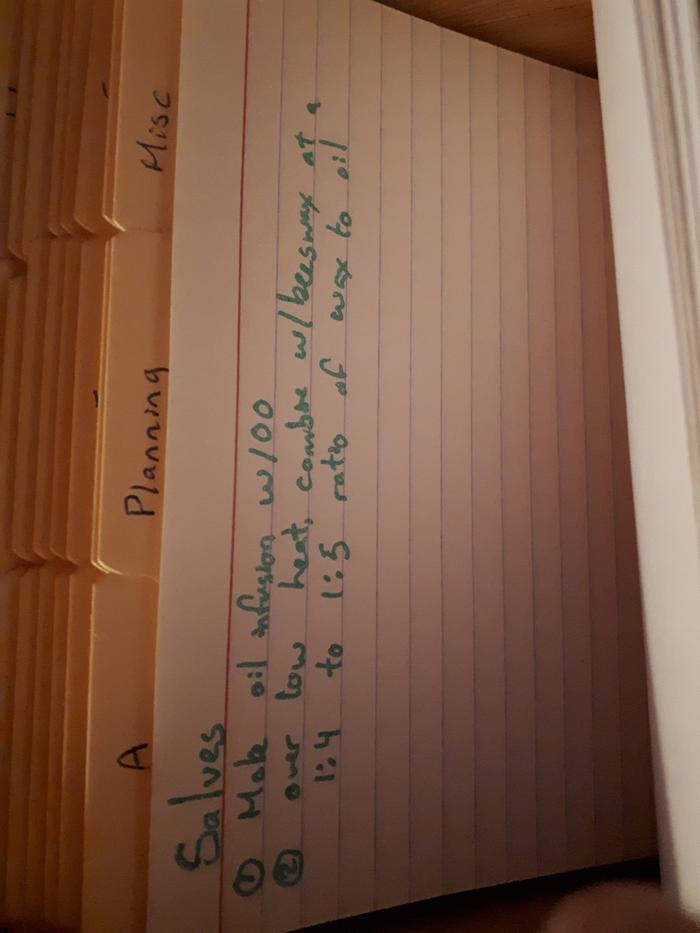 A
Planning
Misc
Salves
① Make oil infusion w/OO
② over low heat, combine w/beeswax at a
1:4 to 1:5 ratio of wax to oil